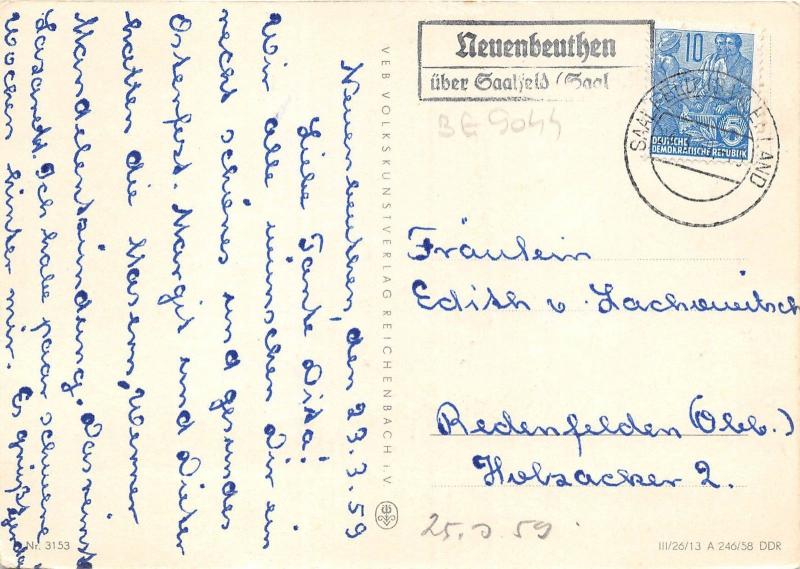 Neuenbeuthen, den 23.3.59
Liebe Tante Dita!
Wir alle wünschen Dir ein
recht schönes und gesundes
Osterfest. Margit und Dieter
hatten die Masern, Werner
Mandelentzündung. Das reinste
Lazarett. Ich habe paar schwere
Wochen hinter mir. Es grüßt
VEB VOLKSKUNSTVERLAG REICHENBACH i. V.
Nr. 3153
Neuenbeuthen
über Saalfeld (Saal
BE 9044
10
5
DEUTSCHE
DEMOKRATISCHE REPUBLIK
SAALFELD
Fräulein
Edith v. Lachowitsch
Redenfelden (Obb.)
Holzacker 2.
25. 3 59
III/26/13 A 246/58 DDR